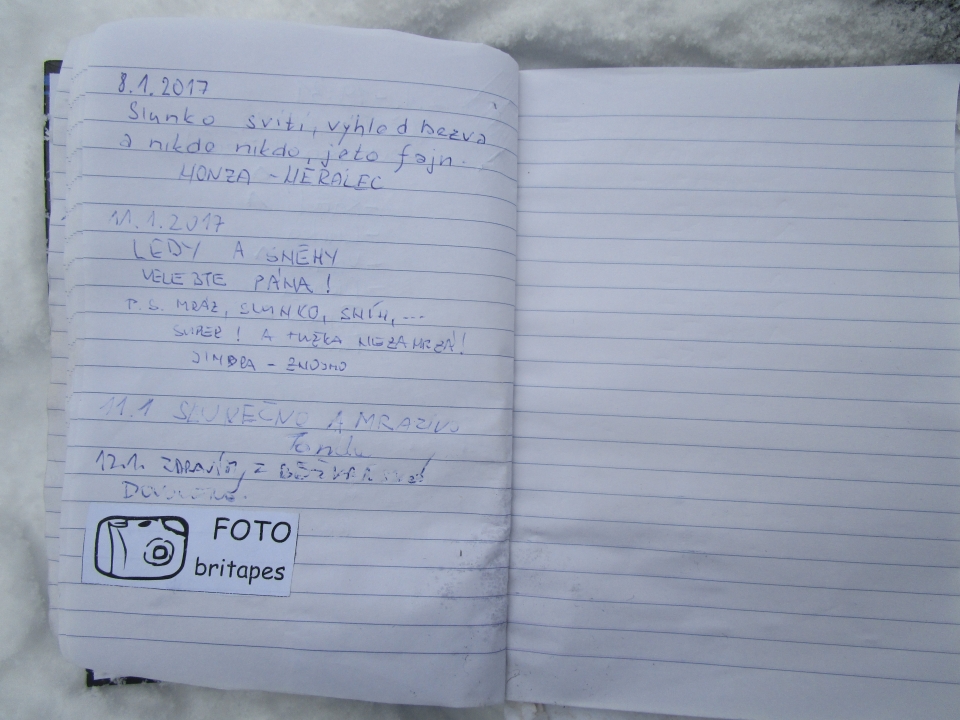 8.1.2017
Slunko svítí, výhled bezva
a nikde nikdo, jeto fajn.
HONZA - MĚŘALEC
11.1.2017
LEDY A SNĚHY
VELEBTE PÁNA!
P.S. MRÁZ, SLUNKO, SNÍH, ...
SUPER! A TUŽKA NEZAMRZÁ!
JINDRA - ZNOJMO
11.1 SLUNEČNO A MRAZIVO
12.1. ZDRAVÍM, Z
FOTO
britapes